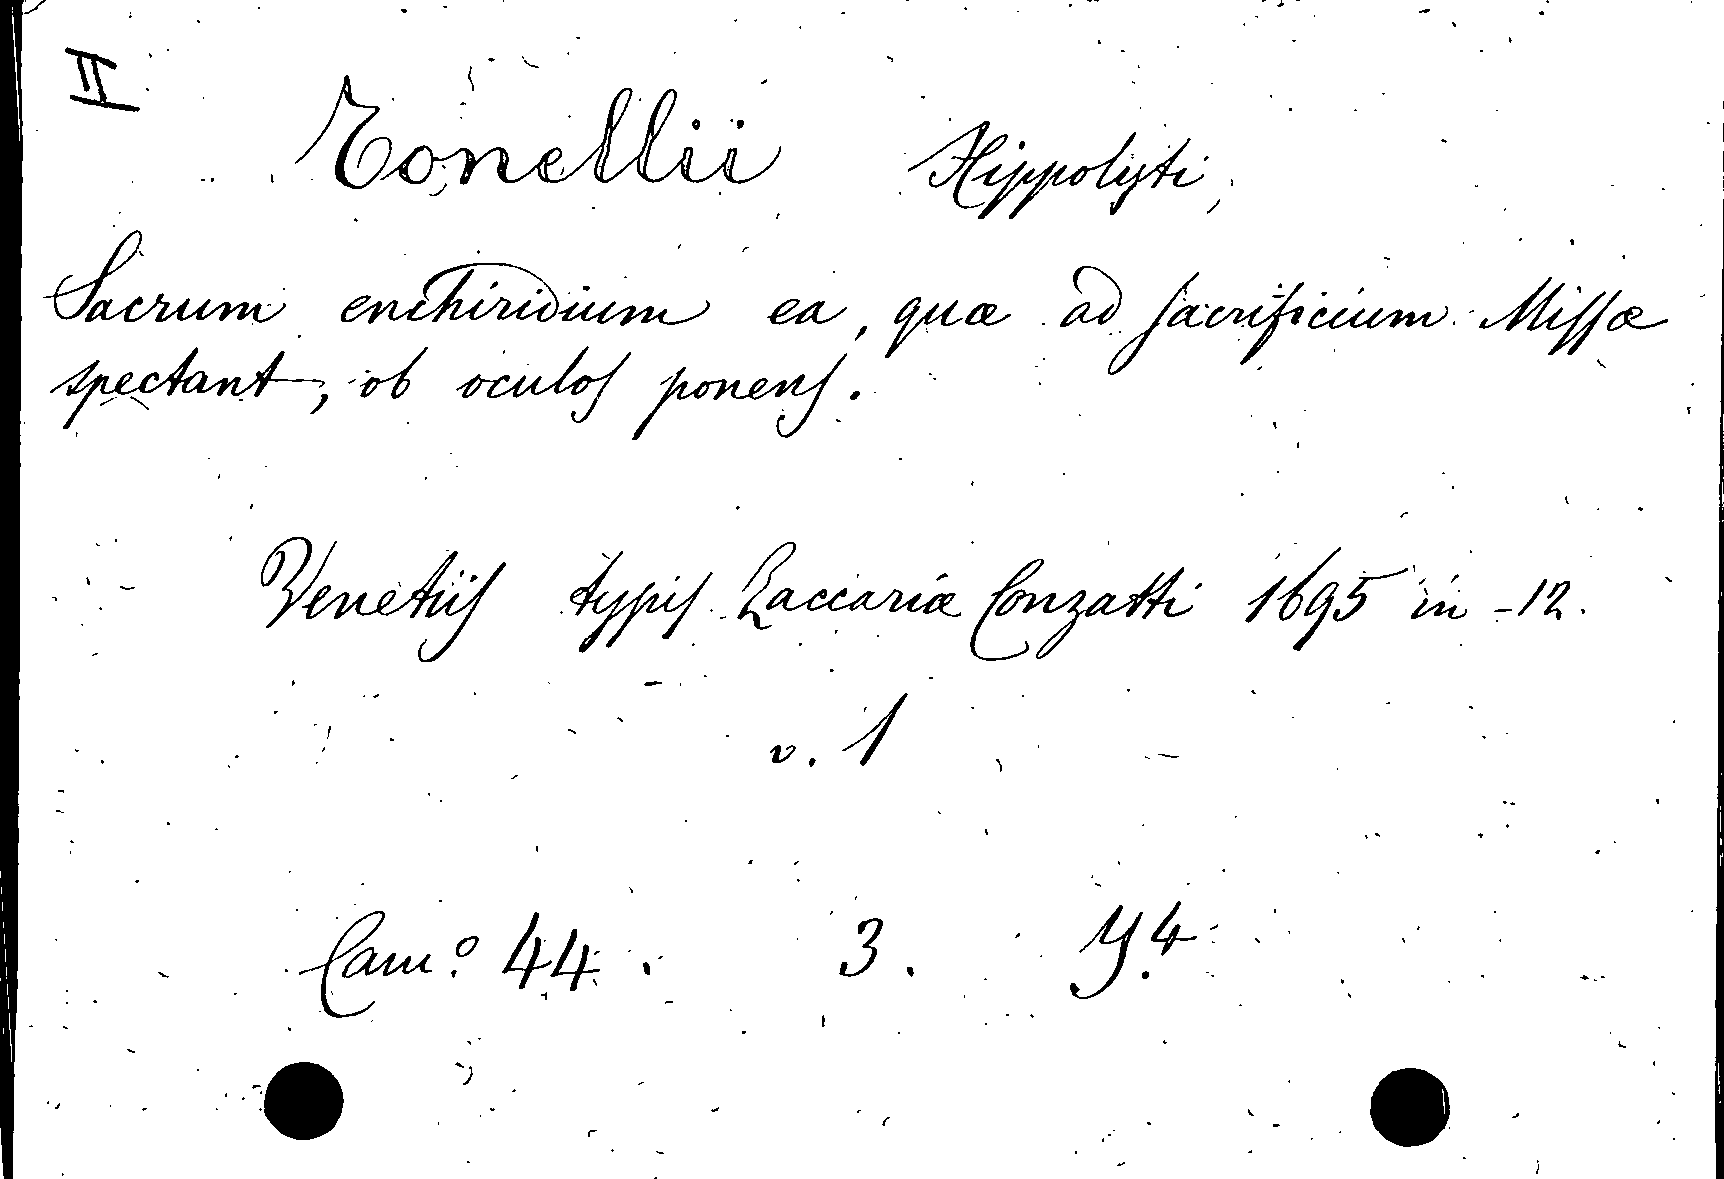 II
Tonellii Hippolyti,
Sacrum enchiridium ea, quæ ad sacrificium Missæ
spectant, ob oculos ponens.
Venetiis typis Zaccariæ Conzatti 1695 in -12.
v. 1
Cam.º 44. 3. Y.4